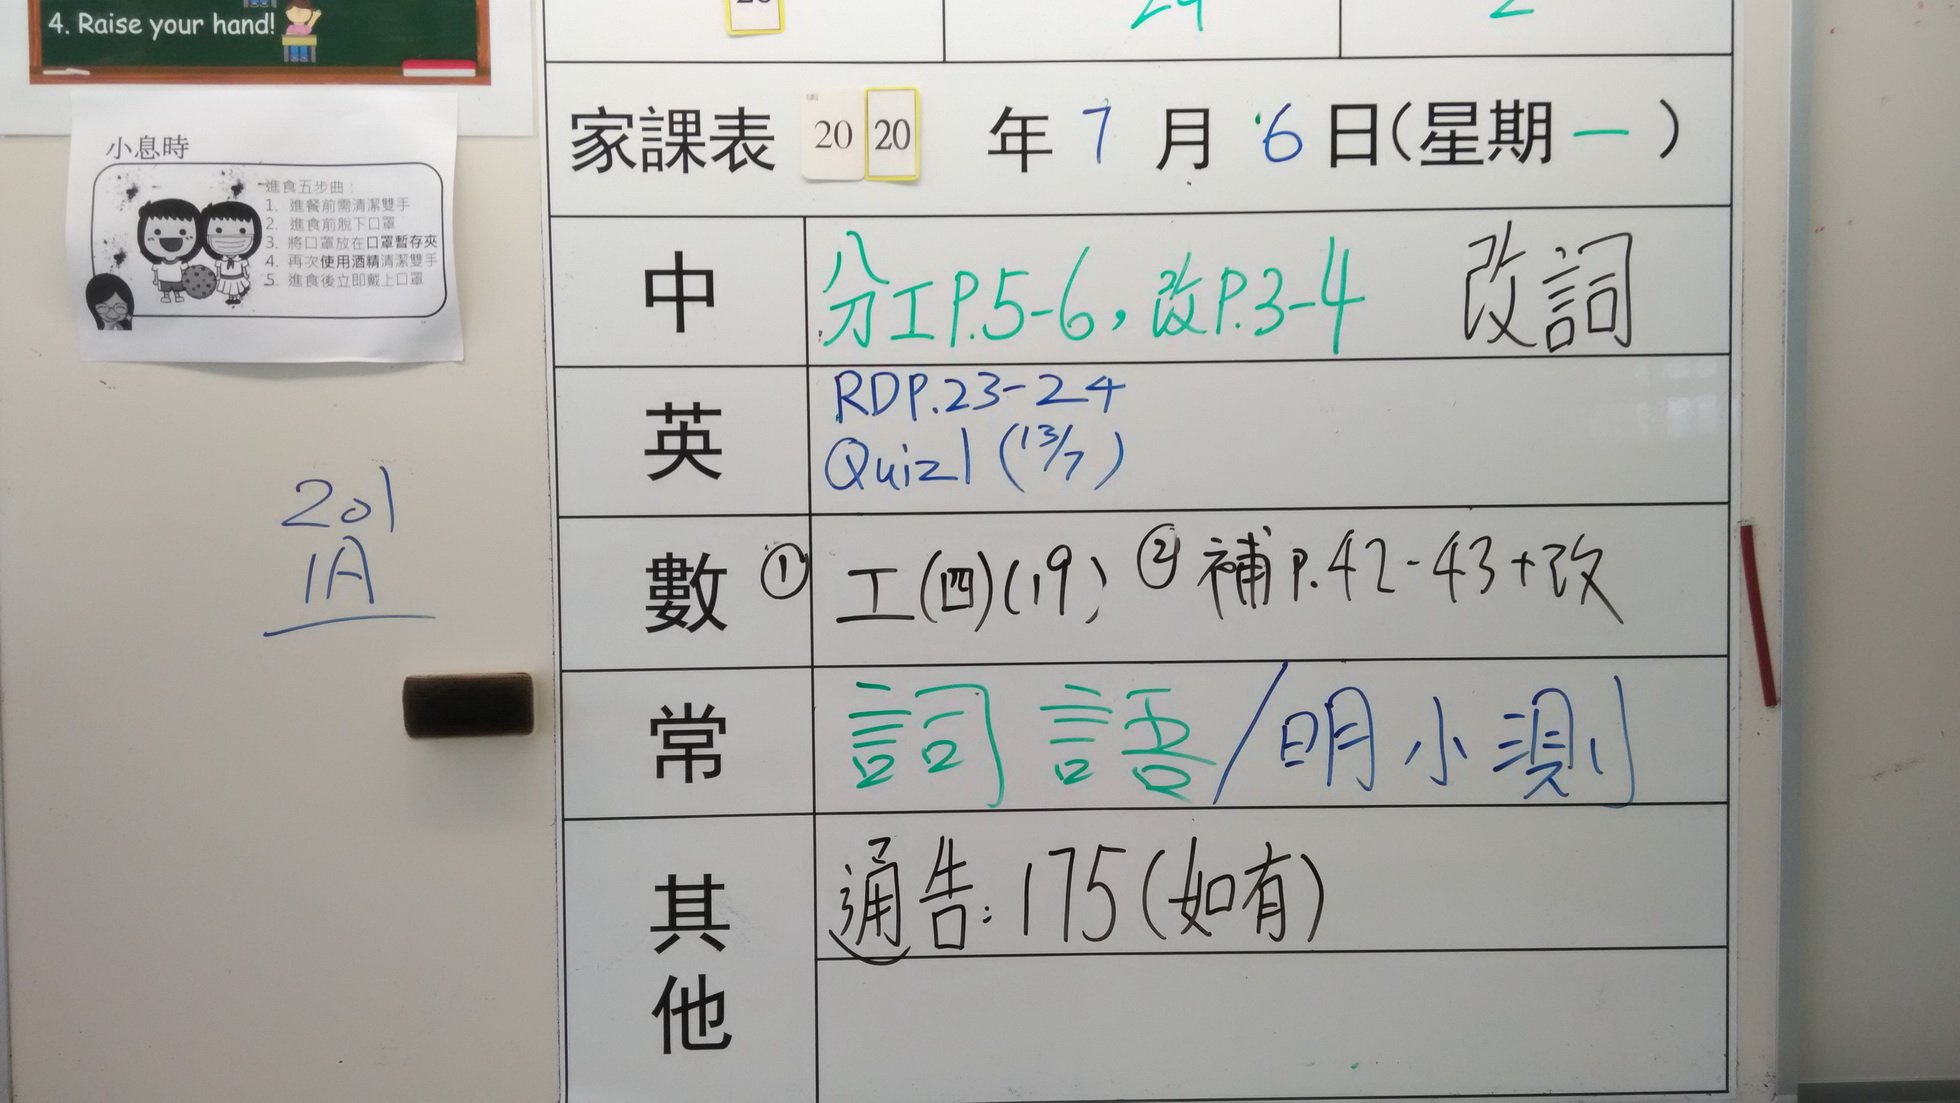 4. Raise your hand!
小息時
進食五步曲：
1. 進餐前需清潔雙手
2. 進食前脫下口罩
3. 將口罩放在口罩暫存夾
4. 再次使用酒精清潔雙手
5. 進食後立即戴上口罩
201
1A
29 2
家課表 20 20 年 7 月 6 日(星期一)
中 分工P.5-6，改P.3-4 改詞
英 RDP.23-24
Quiz1 (13/7)
數 ① 工(四)(19) ② 補P.42-43+改
常 詞語/明小測
其他 通告：175(如有)